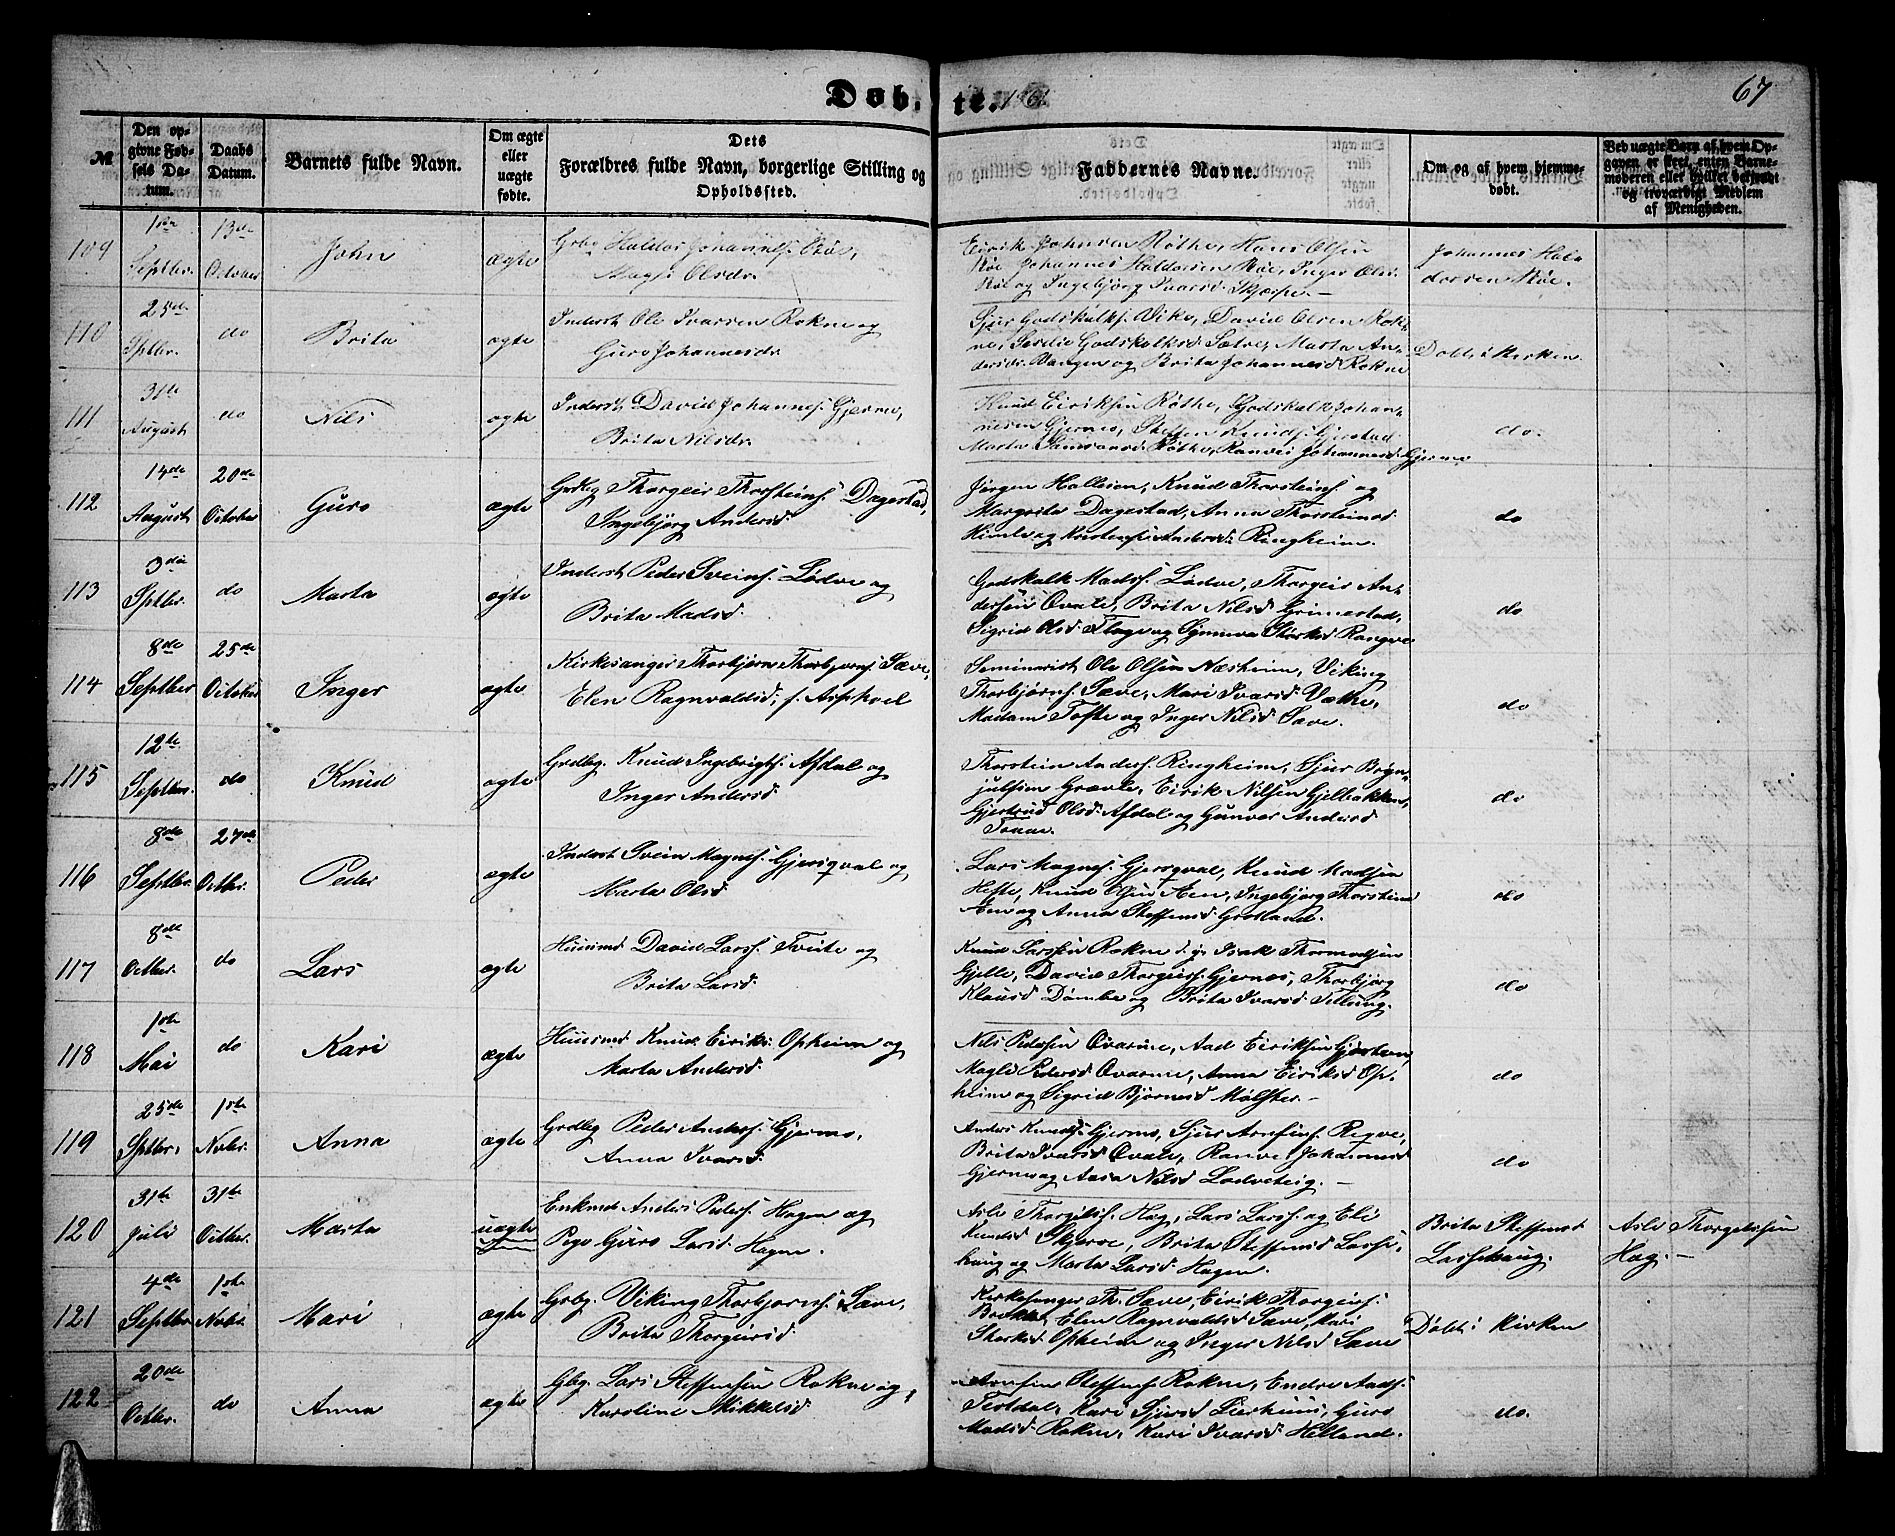 Døb, te. 1861.
67
№
Den op-
givne Fød-
sels Da-
tum.
Daabs
Datum.
Barnets fulde Navn.
Om ægte
eller
uægte
fødte.
Dets
Forældres fulde Navn, borgerlige Stilling og
Opholdssted.
Faddernes Navne.
Om og af hvem hjemme-
døbt.
Ved uægte Barn af hvem Op-
gaven er skeet, enten Barne-
moderen eller hvilket bekjendt
og troværdigt Medlem
af Menigheden.
109
1ste
Septbr.
13de
October
John
ægte
Grbg Haldor Johannes. Röe,
Magli Olsdr.
Eirik Johnsen Röthe, Hans Olsen
Röe, Johannes Haldorsen Röe, Inger Olsd.
Röe og Ingebjörg Ivarsd. Skjerpe.
Johannes Hal-
dorsen Röe.
110
25de
Sptbr.
do
Brita
ægte
Inderst Ole Ivarsen Rokne og
Guro Johannesdr.
Sjur Godskalks. Vike, David Olsen Rok-
ne, Godskalksd. Sætre, Marta An-
dersdr. Vangen og Brita Johannesd Rokne
Döbt i Kirken
111
31te
August
do
Nils
ægte
Inderst David Johannes. Gjerme,
Brita Nilsdr.
Knud Eiriksen Röthe, Godskalk Johan-
nesen Gjerme, Steffen Knuds. Gjerstad
Marta Samsonsd Röthe, Ranvei Johannesd Gjerme
do.
112
14de
August
20de
October
Guro
ægte
Grdbg Thorgeir Thorsteins. Dagestad,
Ingebjörg Andersd.
Jörgen Hallesen, Knud Thorsteins. og
Margrita Dagestad, Anna Thorsteinsd
Himle og Andersd. Ringheim.
do
113
3die
Sptbr.
do
Marta
ægte
Inderst Peder Sveins. Lödve og
Brita Madsd.
Godskalk Mads. Lödve, Thorgeir An-
dersen Qvale, Brita Nilsd Grimestad,
Sigrid Olsd Flage og Gunvor Störksd Rongve
do
114
8de
Septbr
25de
October
Inger
ægte
Kirkesanger Thorbjörn Thorbjörns. Sæve,
Elen Ragnvaldsd, f. Asphoel
Seminarist Ole Olsen Næsheim, Viking
Thorbjörns. Sæve, Mari Ivarsd Væthe,
Madam Tofte og Inger Nilsd Sæve.
do
115
12te
Septbr.
do
Knud
ægte
Grdbg. Knud Ingebrigts. Afdal og
Inger Andersd.
Thorstein Anders. Ringheim, Sjur Bryn-
julfsen Græve, Eirik Nilsen Gjelbakken,
Gjertrud Olsd. Afdal og Gunvor Andersd
do
116
8de
Septbr.
27de
Octbr.
Peder
ægte
Inderst Svein Magnes. Gjersqval og
Marta Olsd.
Lars Magnes. Gjersqval, Knud Madsen
Hefte, Knud Aen, Ingebjörg Thorsteinsd
Aen og Anna Steffensd Grotland.
do
117
8de
Octbr.
do
Lars
ægte
Huusmd. David Lars. Tveite og
Brita Larsd.
Knud Larssen Rokne d. y. Isak Thormodsen
Gjelle, David Thorgeirs. Gjernes, Thorbjörg
Klausd Dömbe og Brita Ivarsd Tillung.
do
118
1ste
Mai
do
Kari
ægte
Huusmd Knud Eiriks. Opheim og
Marta Andersd.
Nils Pedersen Qvarme, Aad Eiriksen Gjerstein,
Magli Pedersd Qvarme, Anna Eiriksd Op-
heim og Sigrid Björnesd Mölster.
do
119
25de
Sptbr.
1ste
Novbr.
Anna
ægte
Grdbg Peder Anders. Gjerme,
Anna Ivarsd.
Anders Knuds. Gjerme, Sjur Arnfins. Regve,
Brita Ivarsd Qvale, Ranvei Johannesd
Gjerme og Aasa Nilsd Lødveteig.
do
120
31te
Juli
31te
Octbr.
Marta
uægte
Enkemd Anders Peders. Hagen og
Pige Guro Larsd. Hagen.
Asle Thorgels. Hag, Lars Lars. og Eli
Knudsd Skjerve, Brita Steffensd Lasse-
haug og Marta Larsd Hagen.
Brita Steffensd
Lassehaug.
Asle Thorgelssen
Hag.
121
4de
Septbr
1ste
Novbr.
Mari
ægte
Grbg. Viking Thorbjörns. Sæve,
Brita Thorgeirsd.
Kirkesanger Th. Sæve, Eirik Thorgeirs.
Elen Ragnvaldsd Sæve, Kari
Störksd Opheim og Inger Nilsd Sæve
Döbt i Kirken
122
20de
Octbr.
do
Anna
ægte
Gbg. Lars Steffensen Rokne og
Karoline Mikkelsd
Arnfin Steffens. Rokne, Endre Aads.
Kari Sjursd Lierhuus, Guro
Madsd Rokne, Kari Ivarsd Helland.
do.